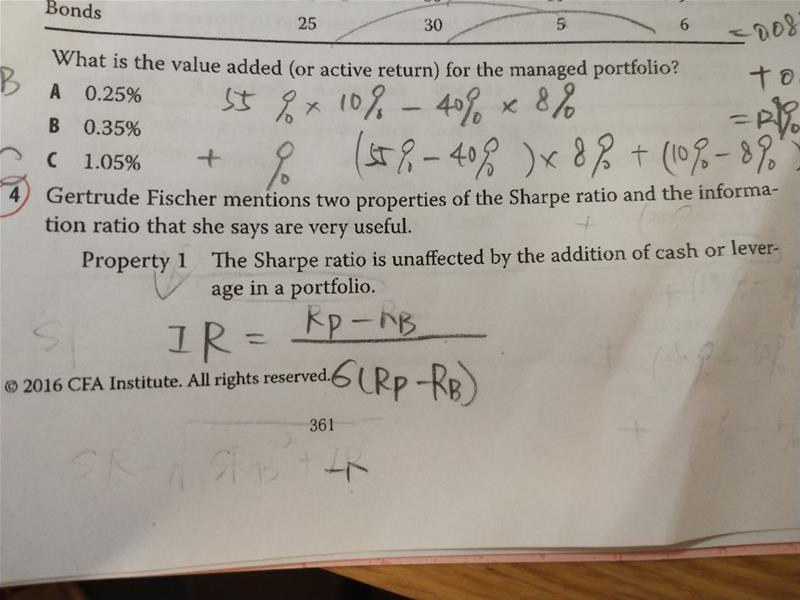 Bonds 25 30 5 6 =0.08
What is the value added (or active return) for the managed portfolio?
B
A 0.25% 55 % × 10% - 40% × 8%
B 0.35%
C 1.05% + % (55% - 40%) × 8% + (10% - 8%)
4 Gertrude Fischer mentions two properties of the Sharpe ratio and the informa-
tion ratio that she says are very useful.
Property 1 The Sharpe ratio is unaffected by the addition of cash or lever-
age in a portfolio.
IR = RP - RB
© 2016 CFA Institute. All rights reserved. 6(RP - RB)
361
IR